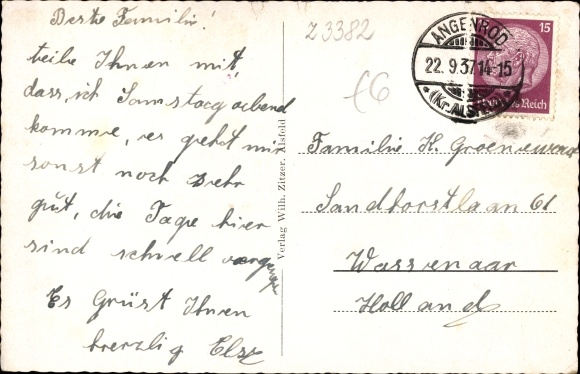 Beste Familie!
teile Ihnen mit,
dass ich Samstag abend
komme, es geht mir
sonst noch sehr
gut, die Tage hier
sind schnell vergangen
Es Grüst Ihnen
herzlig Else
Verlag Wilh. Zitzer, Alsfeld
Z 3382
£6
ANGENROD
22.9.37.14-15
(Kr. ALSFELD)
15
Reich
Familie K. Groeneweg
Sandhorstlaan 61
Wassenaar
Holland